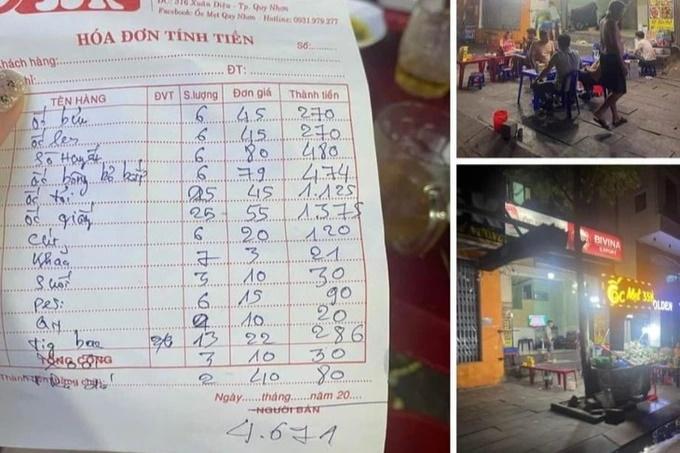 ĐC: 316 Xuân Diệu - Tp. Quy Nhơn
Facebook: Ốc Mẹt Quy Nhơn - Hotline: 0931.979.277
HÓA ĐƠN TÍNH TIỀN
Số:
Khách hàng:
chỉ: ĐT:
TÊN HÀNG ĐVT S.lượng Đơn giá Thành tiền
ốc bưu 6 45 270
ốc len 6 45 270
Sò Huyết 6 80 480
ốc bông bỏ bắp 6 79 474
ốc tỏi 25 45 1.125
ốc giấy 25 55 1375
Cút 6 20 120
Khăn 7 3 21
Suối 3 10 30
Pesi 6 15 90
2 10 20
Tig bạc 13 22 286
TỔNG CỘNG 3 10 30
Thành 2 40 80
Ngày......tháng......năm 20....
NGƯỜI BÁN
4.671
BIVINA
EXPORT
ỐC Mẹt 35K
OLDEN